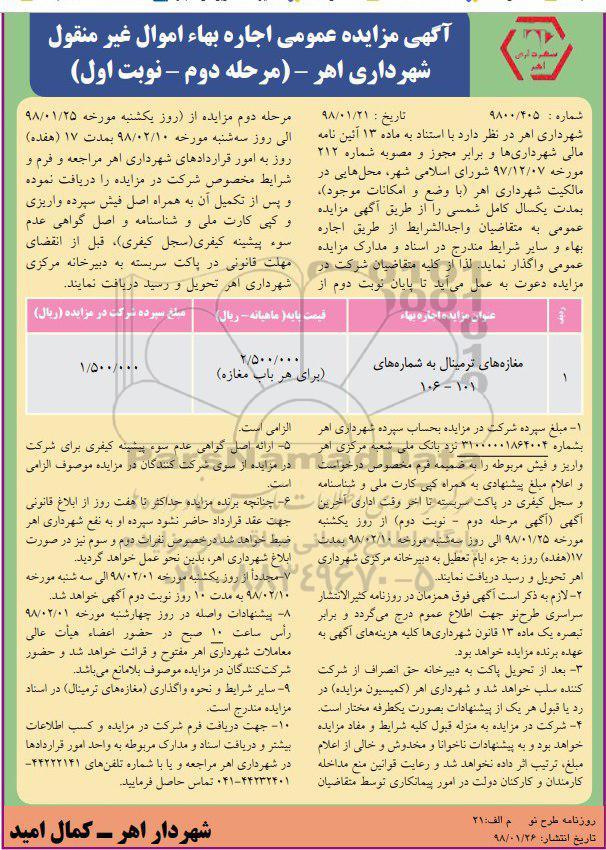 آگهی مزایده عمومی اجاره بهاء اموال غیر منقول
شهرداری اهر – (مرحله دوم – نوبت اول)
شهرداری
اهر
شماره : ۹۸۰۰/۴۰۵ تاریخ : ۹۸/۰۱/۲۱
شهرداری اهر در نظر دارد با استناد به ماده ۱۳ آئین نامه
مالی شهرداری‌ها و برابر مجوز و مصوبه شماره ۲۱۲
مورخه ۹۷/۱۲/۰۷ شورای اسلامی شهر، محل‌هایی در
مالکیت شهرداری اهر (با وضع و امکانات موجود)،
بمدت یکسال کامل شمسی را از طریق آگهی مزایده
عمومی به متقاضیان واجدالشرایط از طریق اجاره
بهاء و سایر شرایط مندرج در اسناد و مدارک مزایده
عمومی واگذار نماید. لذا از کلیه متقاضیان شرکت در
مزایده دعوت به عمل می‌آید تا پایان نوبت دوم از
مرحله دوم مزایده از (روز یکشنبه مورخه ۹۸/۰۱/۲۵
الی روز سه‌شنبه مورخه ۹۸/۰۲/۱۰ بمدت ۱۷ (هفده)
روز به امور قراردادهای شهرداری اهر مراجعه و فرم و
شرایط مخصوص شرکت در مزایده را دریافت نموده
و پس از تکمیل آن به همراه اصل فیش سپرده واریزی
و کپی کارت ملی و شناسنامه و اصل گواهی عدم
سوء پیشینه کیفری(سجل کیفری)، قبل از انقضای
مهلت قانونی در پاکت سربسته به دبیرخانه مرکزی
شهرداری اهر تحویل و رسید دریافت نمایند.
ردیف عنوان مزایده اجاره بهاء قیمت پایه( ماهیانه – ریال) مبلغ سپرده شرکت در مزایده (ریال)
۱ مغازه‌های ترمینال به شماره‌های ۲/۵۰۰/۰۰۰ ۱/۵۰۰/۰۰۰
۱۰۱ – ۱۰۶ (برای هر باب مغازه)
۱– مبلغ سپرده شرکت در مزایده بحساب سپرده شهرداری اهر
بشماره ۳۱۰۰۰۰۰۱۸۶۴۰۰۴ نزد بانک ملی شعبه مرکزی اهر
واریز و فیش مربوطه را به ضمیمه فرم مخصوص درخواست
و اعلام مبلغ پیشنهادی به همراه کپی کارت ملی و شناسنامه
و سجل کیفری در پاکت سربسته تا آخر وقت اداری آخرین
آگهی (آگهی مرحله دوم – نوبت دوم) از روز یکشنبه
مورخه ۹۸/۰۱/۲۵ الی روز سه‌شنبه مورخه ۹۸/۰۲/۱۰ بمدت
۱۷(هفده) روز به جزء ایام تعطیل به دبیرخانه مرکزی شهرداری
اهر تحویل و رسید دریافت نمایند.
۲– لازم به ذکر است آگهی فوق همزمان در روزنامه کثیرالانتشار
سراسری طرح‌نو جهت اطلاع عموم درج می‌گردد و برابر
تبصره یک ماده ۱۳ قانون شهرداری‌ها کلیه هزینه‌های آگهی به
عهده برنده مزایده خواهد بود.
۳– بعد از تحویل پاکت به دبیرخانه حق انصراف از شرکت
کننده سلب خواهد شد و شهرداری اهر (کمیسیون مزایده) در
رد یا قبول هر یک از پیشنهادات بصورت یکطرفه مختار است.
۴– شرکت در مزایده به منزله قبول کلیه شرایط و مفاد مزایده
خواهد بود و به پیشنهادات ناخوانا و مخدوش و خالی از اعلام
مبلغ، ترتیب اثر داده نخواهد شد و رعایت قوانین منع مداخله
کارمندان و کارکنان دولت در امور پیمانکاری توسط متقاضیان
الزامی است.
۵– ارائه اصل گواهی عدم سوء پیشینه کیفری برای شرکت
در مزایده از سوی شرکت کنندگان در مزایده موصوف الزامی
است.
۶– چنانچه برنده مزایده حداکثر تا هفت روز از ابلاغ قانونی
جهت عقد قرارداد حاضر نشود سپرده او به نفع شهرداری اهر
ضبط خواهد شد درخصوص نفرات دوم و سوم نیز در صورت
ابلاغ شهرداری اهر، بدین نحو عمل خواهد گردید.
۷–مجدداً از روز یکشنبه مورخه ۹۸/۰۲/۰۱ الی سه شنبه مورخه
۹۸/۰۲/۱۰ به مدت ۱۰ روز نوبت دوم آگهی خواهد شد.
۸– پیشنهادات واصله در روز چهارشنبه مورخه ۹۸/۰۲/۱۱
رأس ساعت ۱۰ صبح در حضور اعضاء هیأت عالی
معاملات شهرداری اهر مفتوح و قرائت خواهد شد و حضور
شرکت‌کنندگان در مزایده موصوف بلامانع می‌باشد.
۹– سایر شرایط و نحوه واگذاری (مغازه‌های ترمینال) در اسناد
مزایده مندرج است.
۱۰– جهت دریافت فرم شرکت در مزایده و کسب اطلاعات
بیشتر و دریافت اسناد و مدارک مربوطه به واحد امور قراردادها
در شهرداری اهر مراجعه و یا با شماره تلفن‌های ۴۴۲۲۲۱۴۱–
۰۴۱–۴۴۲۳۲۴۰۱ تماس حاصل فرمایید.
ParsNamadData
۰۲۱–۸۸۳۴۹۶۷۰–۵
روزنامه طرح نو م الف:۲۱
تاریخ انتشار: ۹۸/۰۱/۲۶
شهردار اهر ــ کمال امید